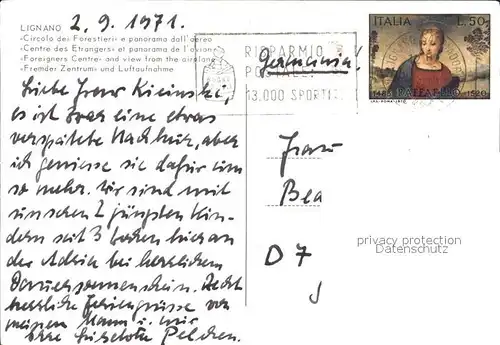 LIGNANO 2.9.1971.
«Circolo dei Forestieri» e panorama dall'aereo
«Centre des Etrangers» et panorama de l'avion
«Foreigners Centre» and view from the airplane
«Fremder Zentrum» und Luftaufnahme
Liebe Frau Kicinski,
es ist zwar eine etwas
verspätete Nachkur, aber
ich geniesse sie dafür um
so mehr. Wir sind mit
unseren 2 jüngsten Kin-
dern seit 3 Wochen hier an
der Adria bei herrlichem
Dauersonnenschein. Recht
herzliche Feriengrüsse von
meinem Mann u. mir
Ihre Liselotte
RISPARMIO
POSTALE
13.000 SPORTELLI
Germania
ITALIA L.50
1483 RAFFAELLO 1520
Frau
Bea
D 7
privacy protection
Datenschutz